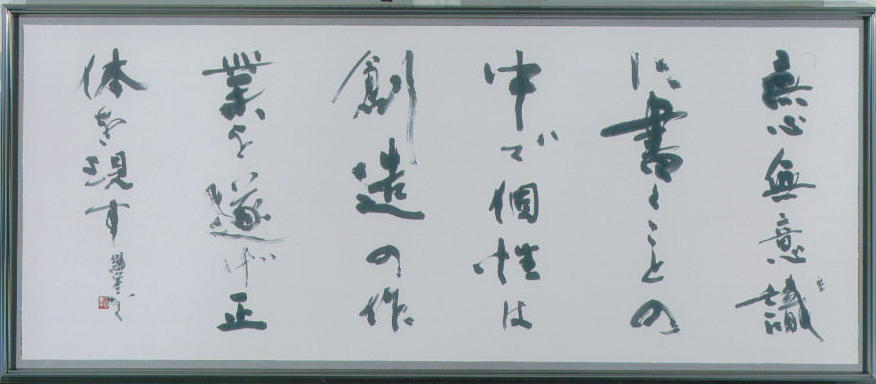 無心無意識
に書くことの
中で個性は
創造の作
業を遂げ正
体を現す